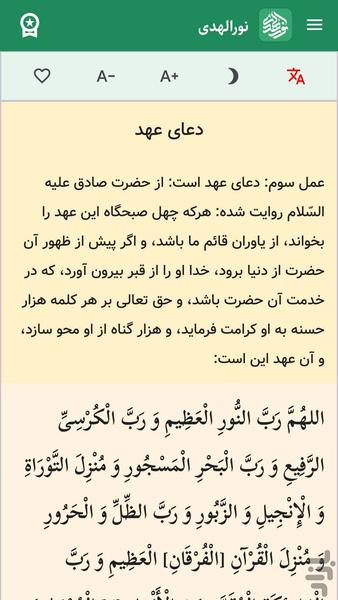 نورالهدی
A- A+
دعای عهد
عمل سوم: دعای عهد است: از حضرت صادق علیه
السّلام روایت شده: هرکه چهل صبحگاه این عهد را
بخواند، از یاوران قائم ما باشد، و اگر پیش از ظهور آن
حضرت از دنیا برود، خدا او را از قبر بیرون آورد، که در
خدمت آن حضرت باشد، و حق تعالی بر هر کلمه هزار
حسنه به او کرامت فرماید، و هزار گناه از او محو سازد،
و آن عهد این است:
اللهُمَّ رَبَّ النُّورِ الْعَظِيمِ وَ رَبَّ الْكُرْسِيِّ
الرَّفِيعِ وَ رَبَّ الْبَحْرِ الْمَسْجُورِ وَ مُنْزِلَ التَّوْرَاةِ
وَ الْإِنْجِيلِ وَ الزَّبُورِ وَ رَبَّ الظِّلِّ وَ الْحَرُورِ
وَ مُنْزِلَ الْقُرْآنِ [الْفُرْقَانِ] الْعَظِيمِ وَ رَبَّ
بازار